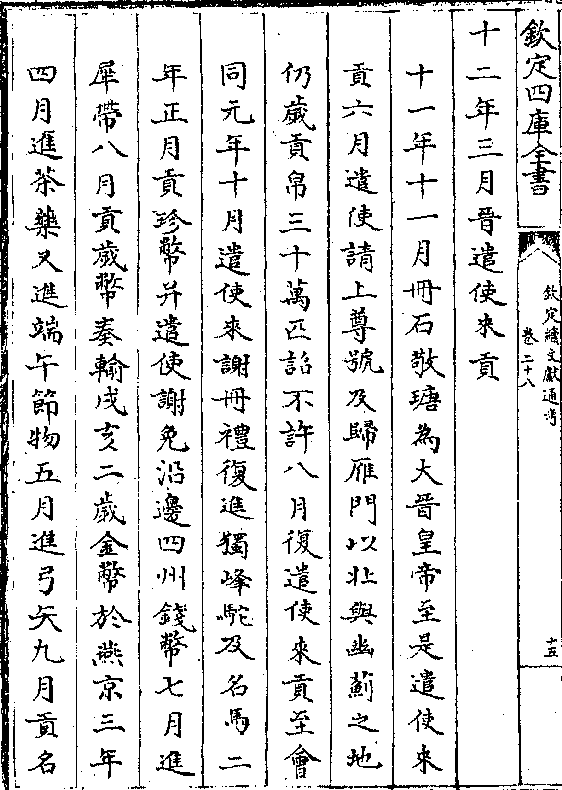 欽定四庫全書
欽定續文獻通考
卷二十八
十五
十二年三月晉遣使來貢
十一年十一月冊石敬瑭為大晉皇帝至是遣使來
貢六月遣使請上尊號及歸雁門以北與幽薊之地
仍歲貢帛三十萬匹詔不許八月復遣使來貢至會
同元年十月遣使來謝冊禮復進獨峰駝及名馬二
年正月貢珍幣并遣使謝免沿邊四州錢幣七月進
犀帶八月貢歲幣奏輸戌亥二歲金幣於燕京三年
四月進茶藥又進端午節物五月進弓矢九月貢名